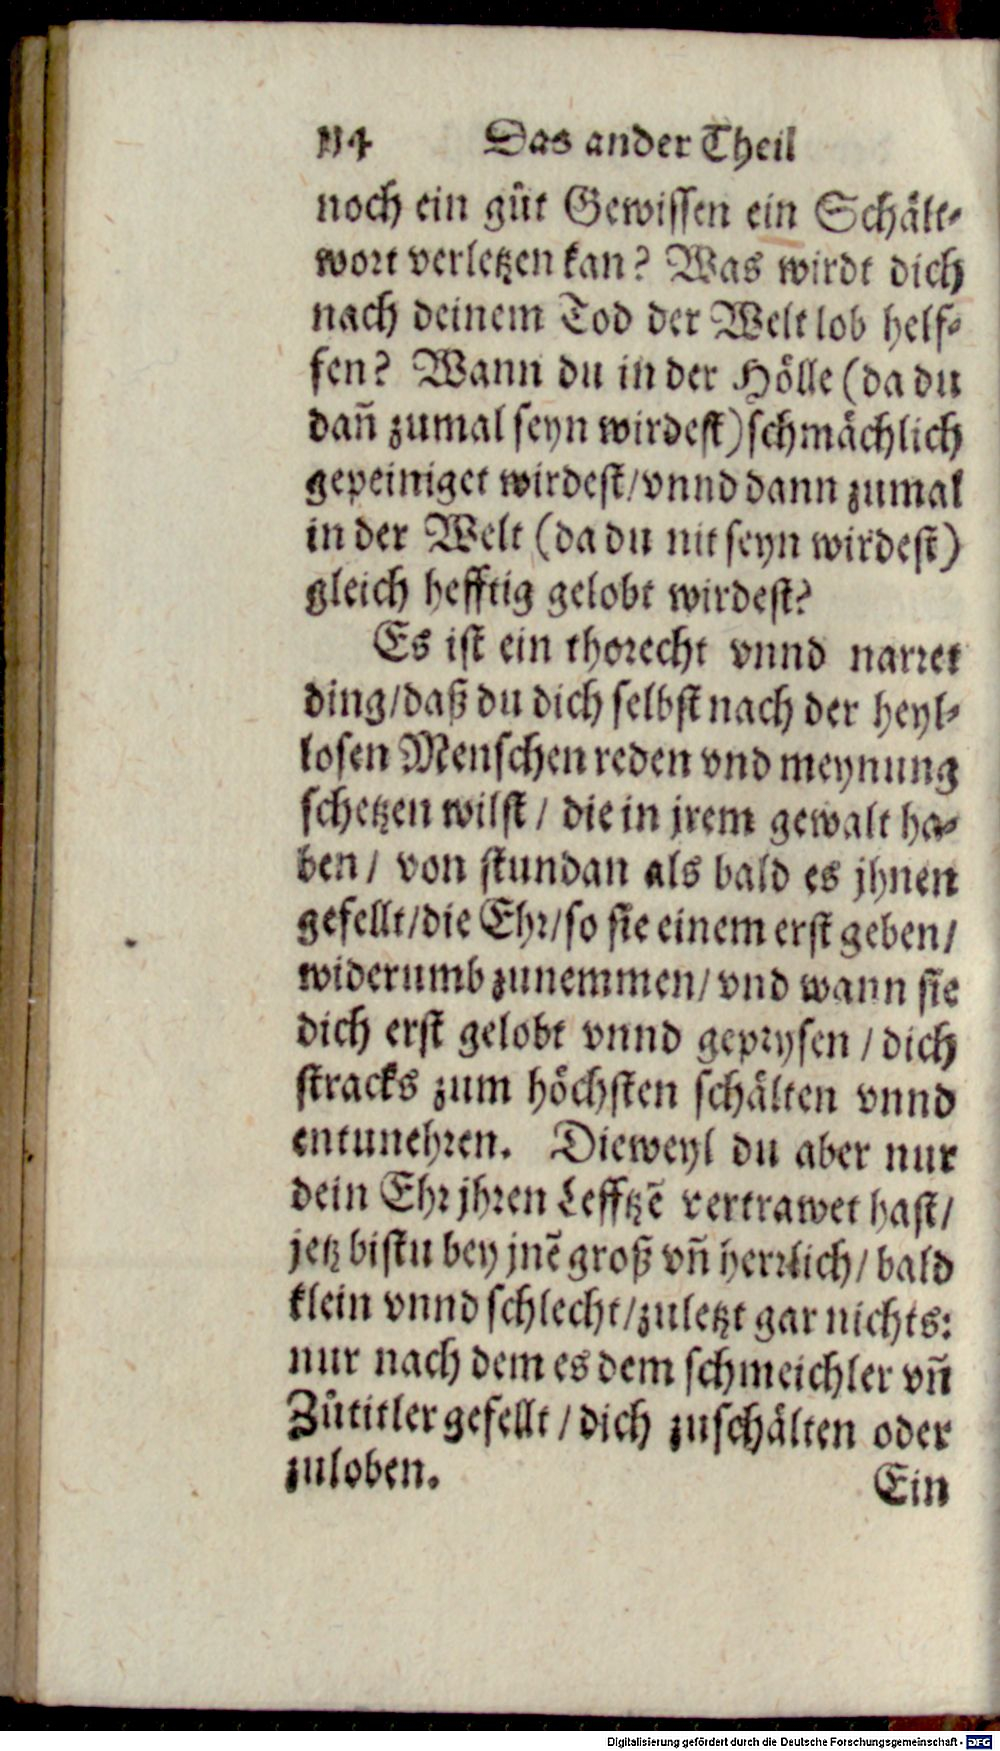 114 Das ander Theil
noch ein gůt Gewissen ein Schält⸗
wort verletzen kan? Was wirdt dich
nach deinem Tod der Welt lob helf⸗
fen? Wann du in der Hölle (da du
dañ zumal seyn wirdest) schmächlich
gepeiniget wirdest/ vnnd dann zumal
in der Welt (da du nit seyn wirdest)
gleich hefftig gelobt wirdest?
Es ist ein thorecht vnnd narret
ding/ daß du dich selbst nach der heyl⸗
losen Menschen reden vnd meynung
schetzen wilst / die in jrem gewalt ha⸗
ben / von stundan als bald es jhnen
gefellt/ die Ehr/ so sie einem erst geben/
widerumb zunemmen/ vnd wann sie
dich erst gelobt vnnd geprysen / dich
stracks zum höchsten schälten vnnd
entunehren. Dieweyl du aber nur
dein Ehr jhren Lefftzē vertrawet hast/
jetz bistu bey jnē groß vñ herrlich/ bald
klein vnnd schlecht/ zuletzt gar nichts:
nur nach dem es dem schmeichler vñ
Zůtitler gefellt / dich zuschälten oder
zuloben.
Ein
Digitalisierung gefördert durch die Deutsche Forschungsgemeinschaft - DFG